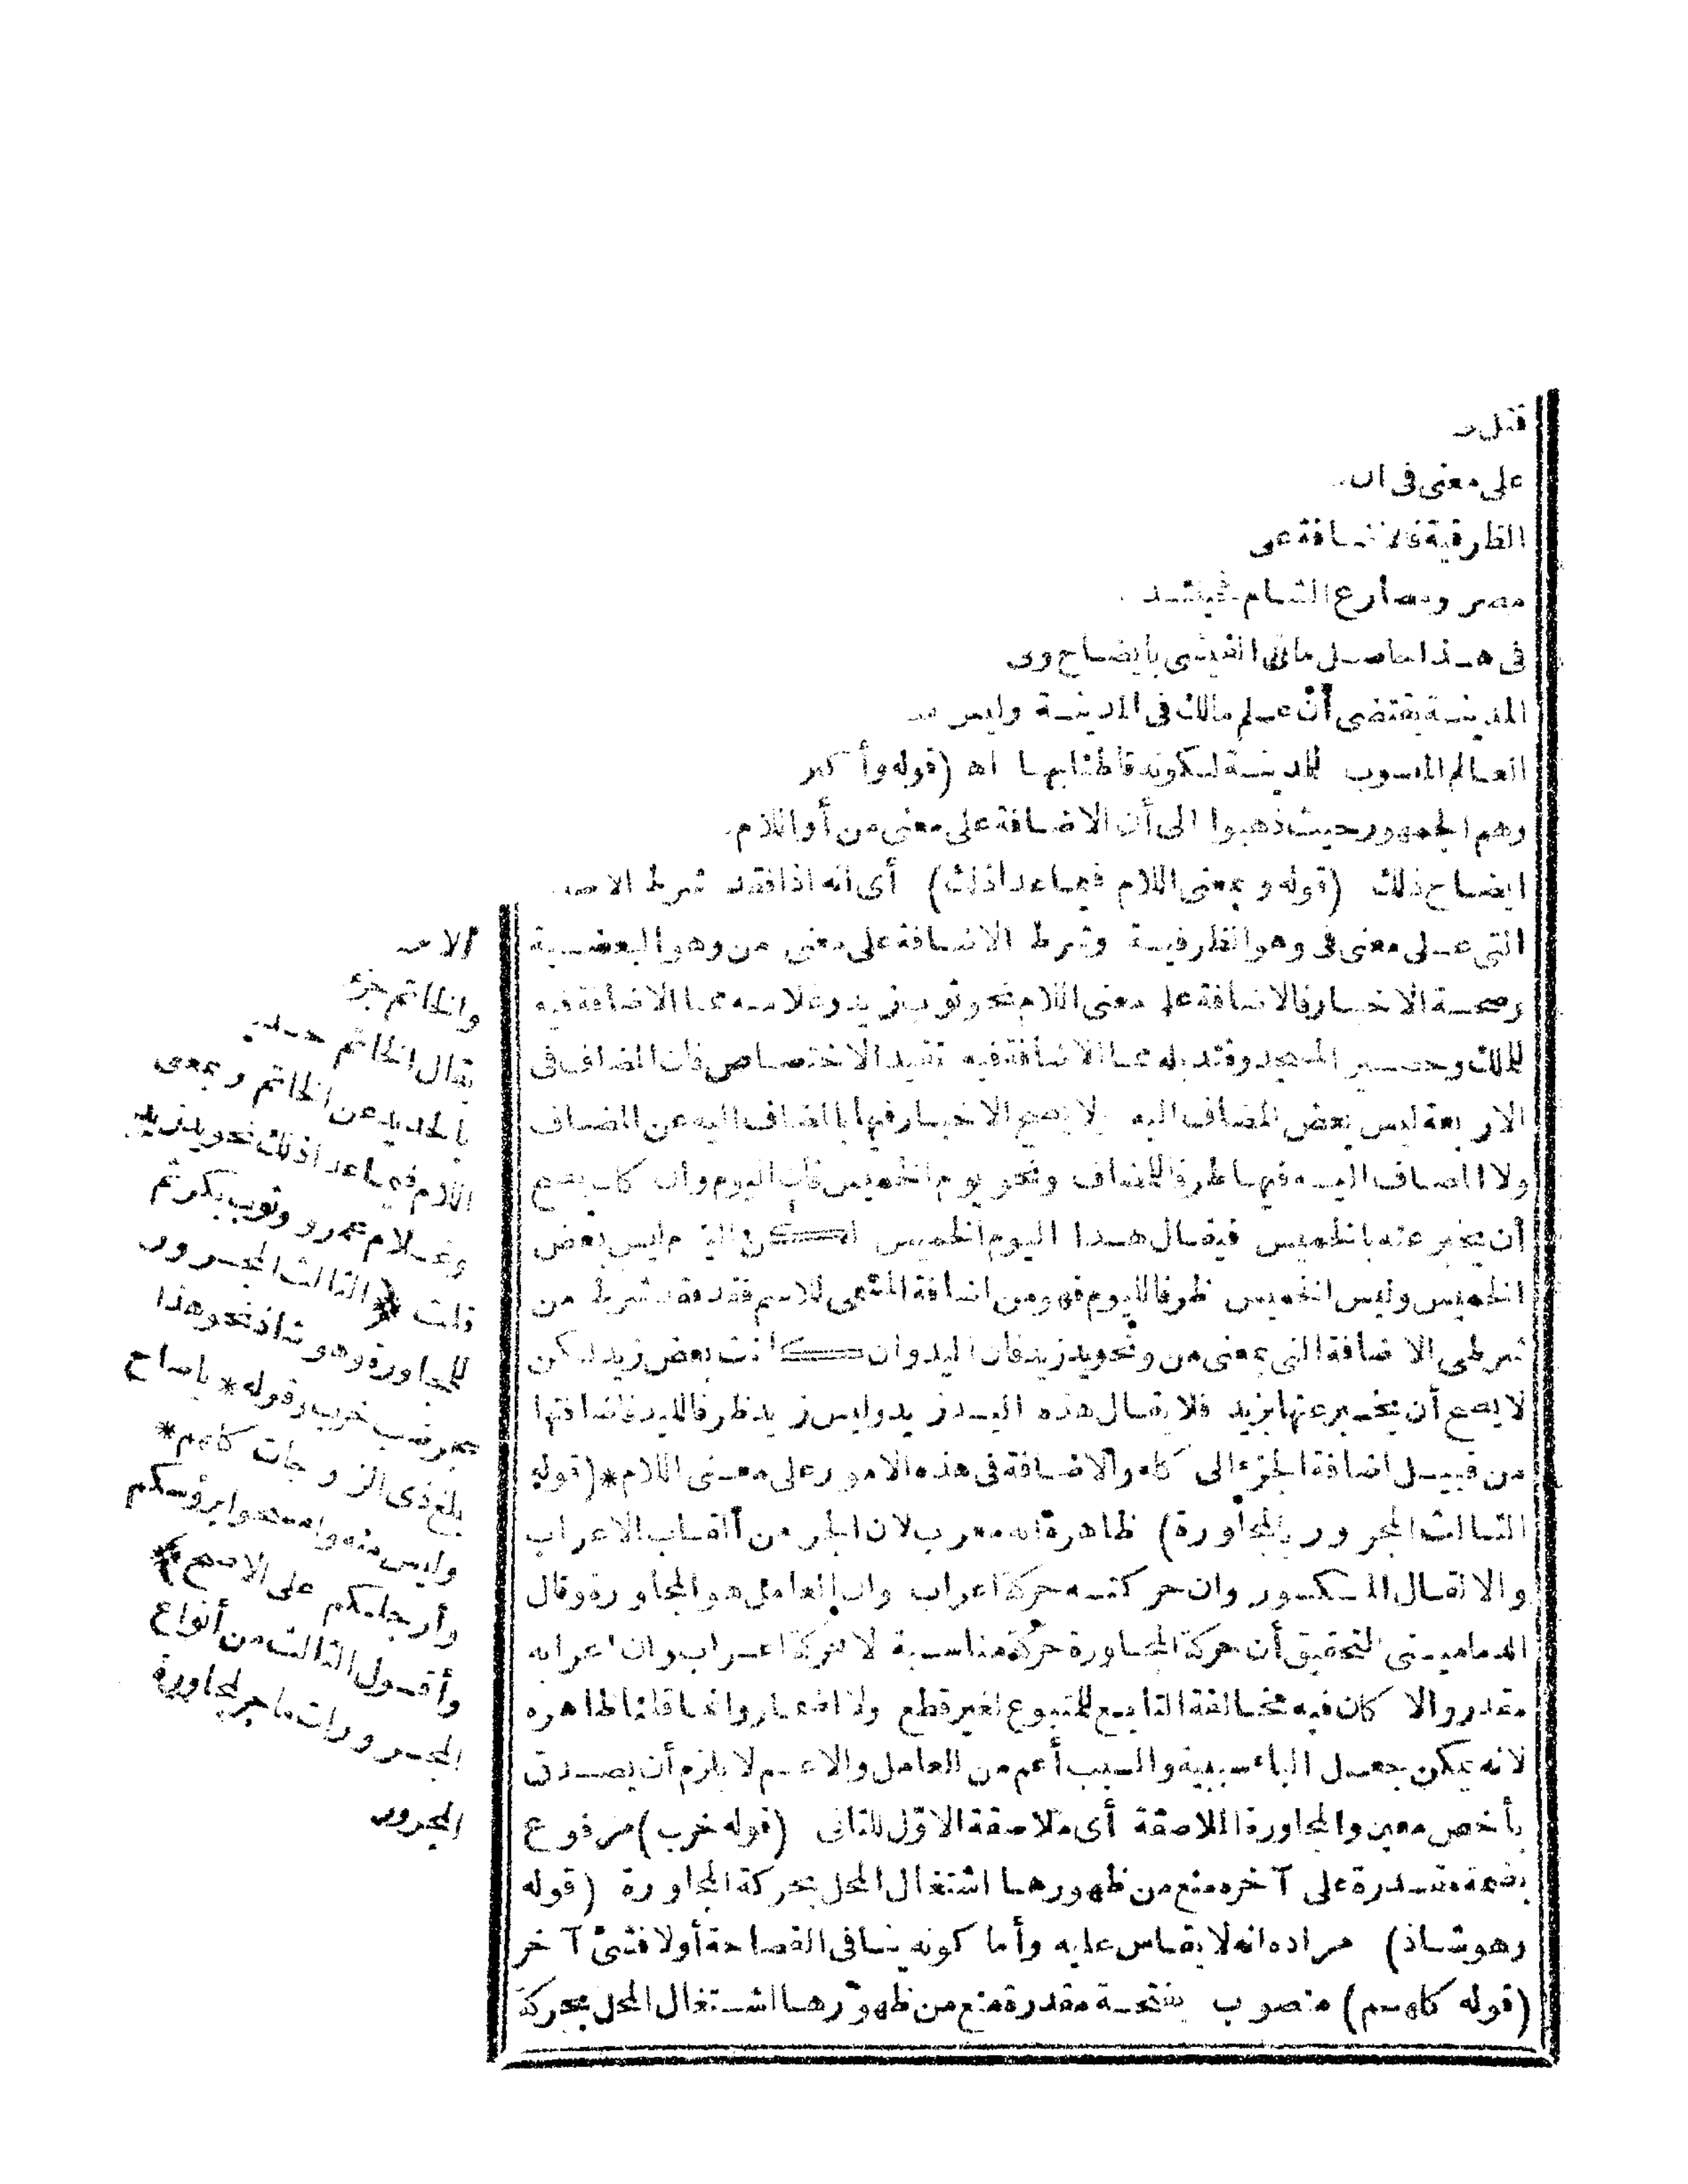 على معنى فى
الظرفية فالاضافة على
مصر ومصارع الشام
فى هذا حاصل مافى الفيشى بايضاح
المدينة يقتضى أن عالم مالك فى المدينة وليس
العالم المنسوب للمدينة لكونه قاطنا بها اه (قوله وأكبر
وهم الجمهور حيث ذهبوا الى أن الاضافة على معنى من أو اللام
ايضاح ذلك (قوله وبمعنى اللام فيما عدا ذلك) أى انه اذا فقد شرط
التى على معنى فى وهو الظرفية وشرط الاضافة على معنى من وهو البعضية
وصحة الاخبار فالاضافة على معنى اللام نحو ثوب زيد وغلامه مما الاضافة فيه
للملك وحصير المسجد وقنديله مما الاضافة فيه تفيد الاختصاص فان المضاف فى
الاربعة ليس بعض المضاف اليه ولا يصح الاخبار فيها بالمضاف اليه عن المضاف
ولا المضاف اليه فيها ظرفا للمضاف ونحو يوم الخميس فان اليوم وان كان يصح
أن يخبر عنه بالخميس فيقال هذا اليوم الخميس لكن اليوم ليس بعض
الخميس وليس الخميس ظرفا لليوم فهو من اضافة المسمى للاسم فقد فقد شرط من
شرطى الاضافة التى بمعنى من ونحو يد زيد فان اليد وان كانت بعض زيد لكن
لا يصح أن يخبر عنها بزيد فلا يقال هذه اليد زيد وليس زيد ظرفا لليد فاضافتها
من قبيل اضافة الجزء الى كله والاضافة فى هذه الامور على معنى اللام * (قوله
الثالث المجرور بالمجاورة) ظاهره انه معرب لان الجر من ألقاب الاعراب
والا لقال المكسور وان حركته حركة اعراب وان العامل هو المجاورة وقال
الدمامينى التحقيق أن حركة المجاورة حركة مناسبة لا حركة اعراب وان اعرابه
مقدر والا كان فيه مخالفة التابع للمتبوع لغير قطع ولا اضمار وانما قلنا ظاهره
لانه يمكن جعل الباء سببية والسبب أعم من العامل والاعم لا يلزم أن يصدق
بأخص معين والمجاورة الملاصقة أى ملاصقة الاوّل للثانى (قوله خرب) مرفوع
بضمة مقدرة على آخره منع من ظهورها اشتغال المحل بحركة المجاورة (قوله
وهو شاذ) مراده انه لا يقاس عليه وأما كونه ينافى الفصاحة أولا فشئ آخر
(قوله كلهم) منصوب بفتحة مقدرة منع من ظهورها اشتغال المحل بحركة
والخاتم جزء
يقال الخاتم حديد
بالحديد عن الخاتم وبمعنى
اللام فيما عدا ذلك نحو يد زيد
وغلام عمرو وثوب بكر ثم
قلت * الثالث المجرور
للمجاورة وهو شاذ نحو هذا
جحر ضب خرب وقوله * ياصاح
بلغ ذوى الزوجات كلهم *
وليس منه وامسحوا برؤسكم
وأرجلكم على الاصح *
وأقول الثالث من أنواع
المجرورات ما جر لمجاورة
المجرور